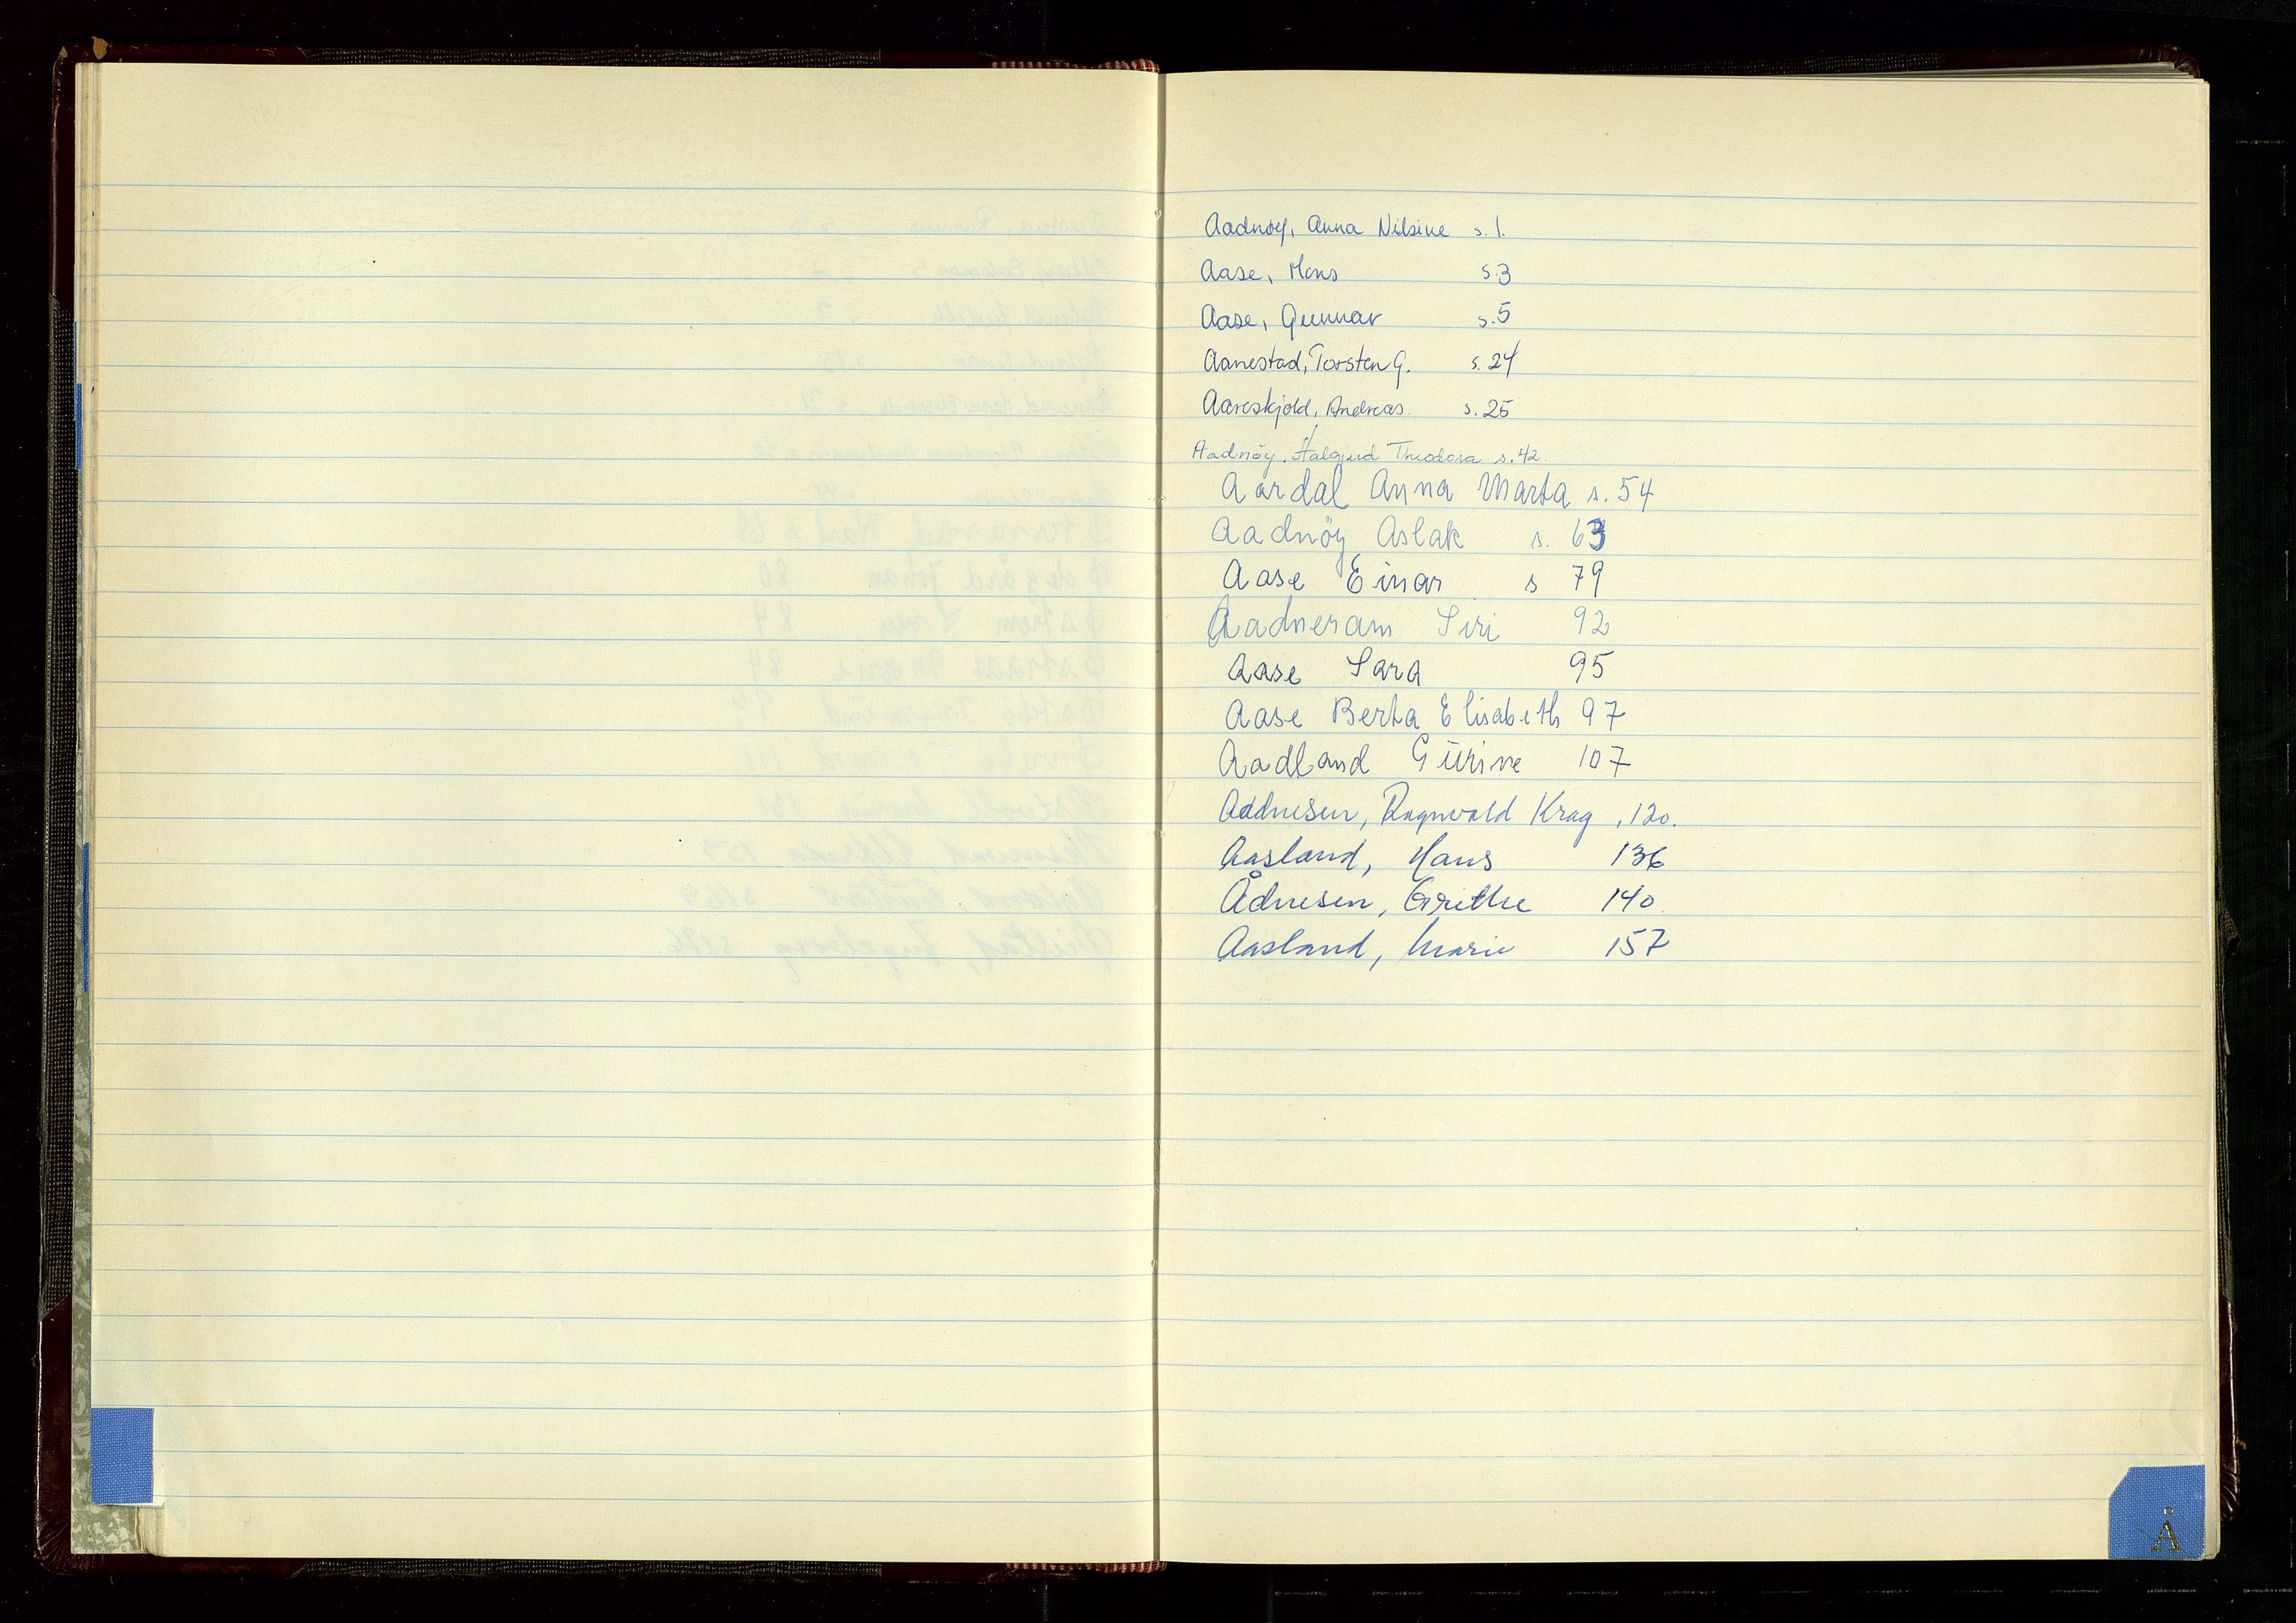 Aadnøy, Anna Nilsine s. 1.
Aase, Mons s.3
Aase, Gunnar s.5
Aanestad, Torsten G. s. 24
Aareskjold, Andreas. s. 25
Aadnøy, Halgjerd Theodora s. 42.
Aardal Anna Marta s. 54
Aadnöy Aslak s. 63
Aase Einar s 79
Aadneram Siri 92
Aase Sara 95
Aase Berta Elisabeth 97
Aadland Gürine 107
Aadnesen, Ragnvald Krag , 120.
Aasland, Hans 136
Ådnesen, Grethe 140
Aasland, Marie 157
Å